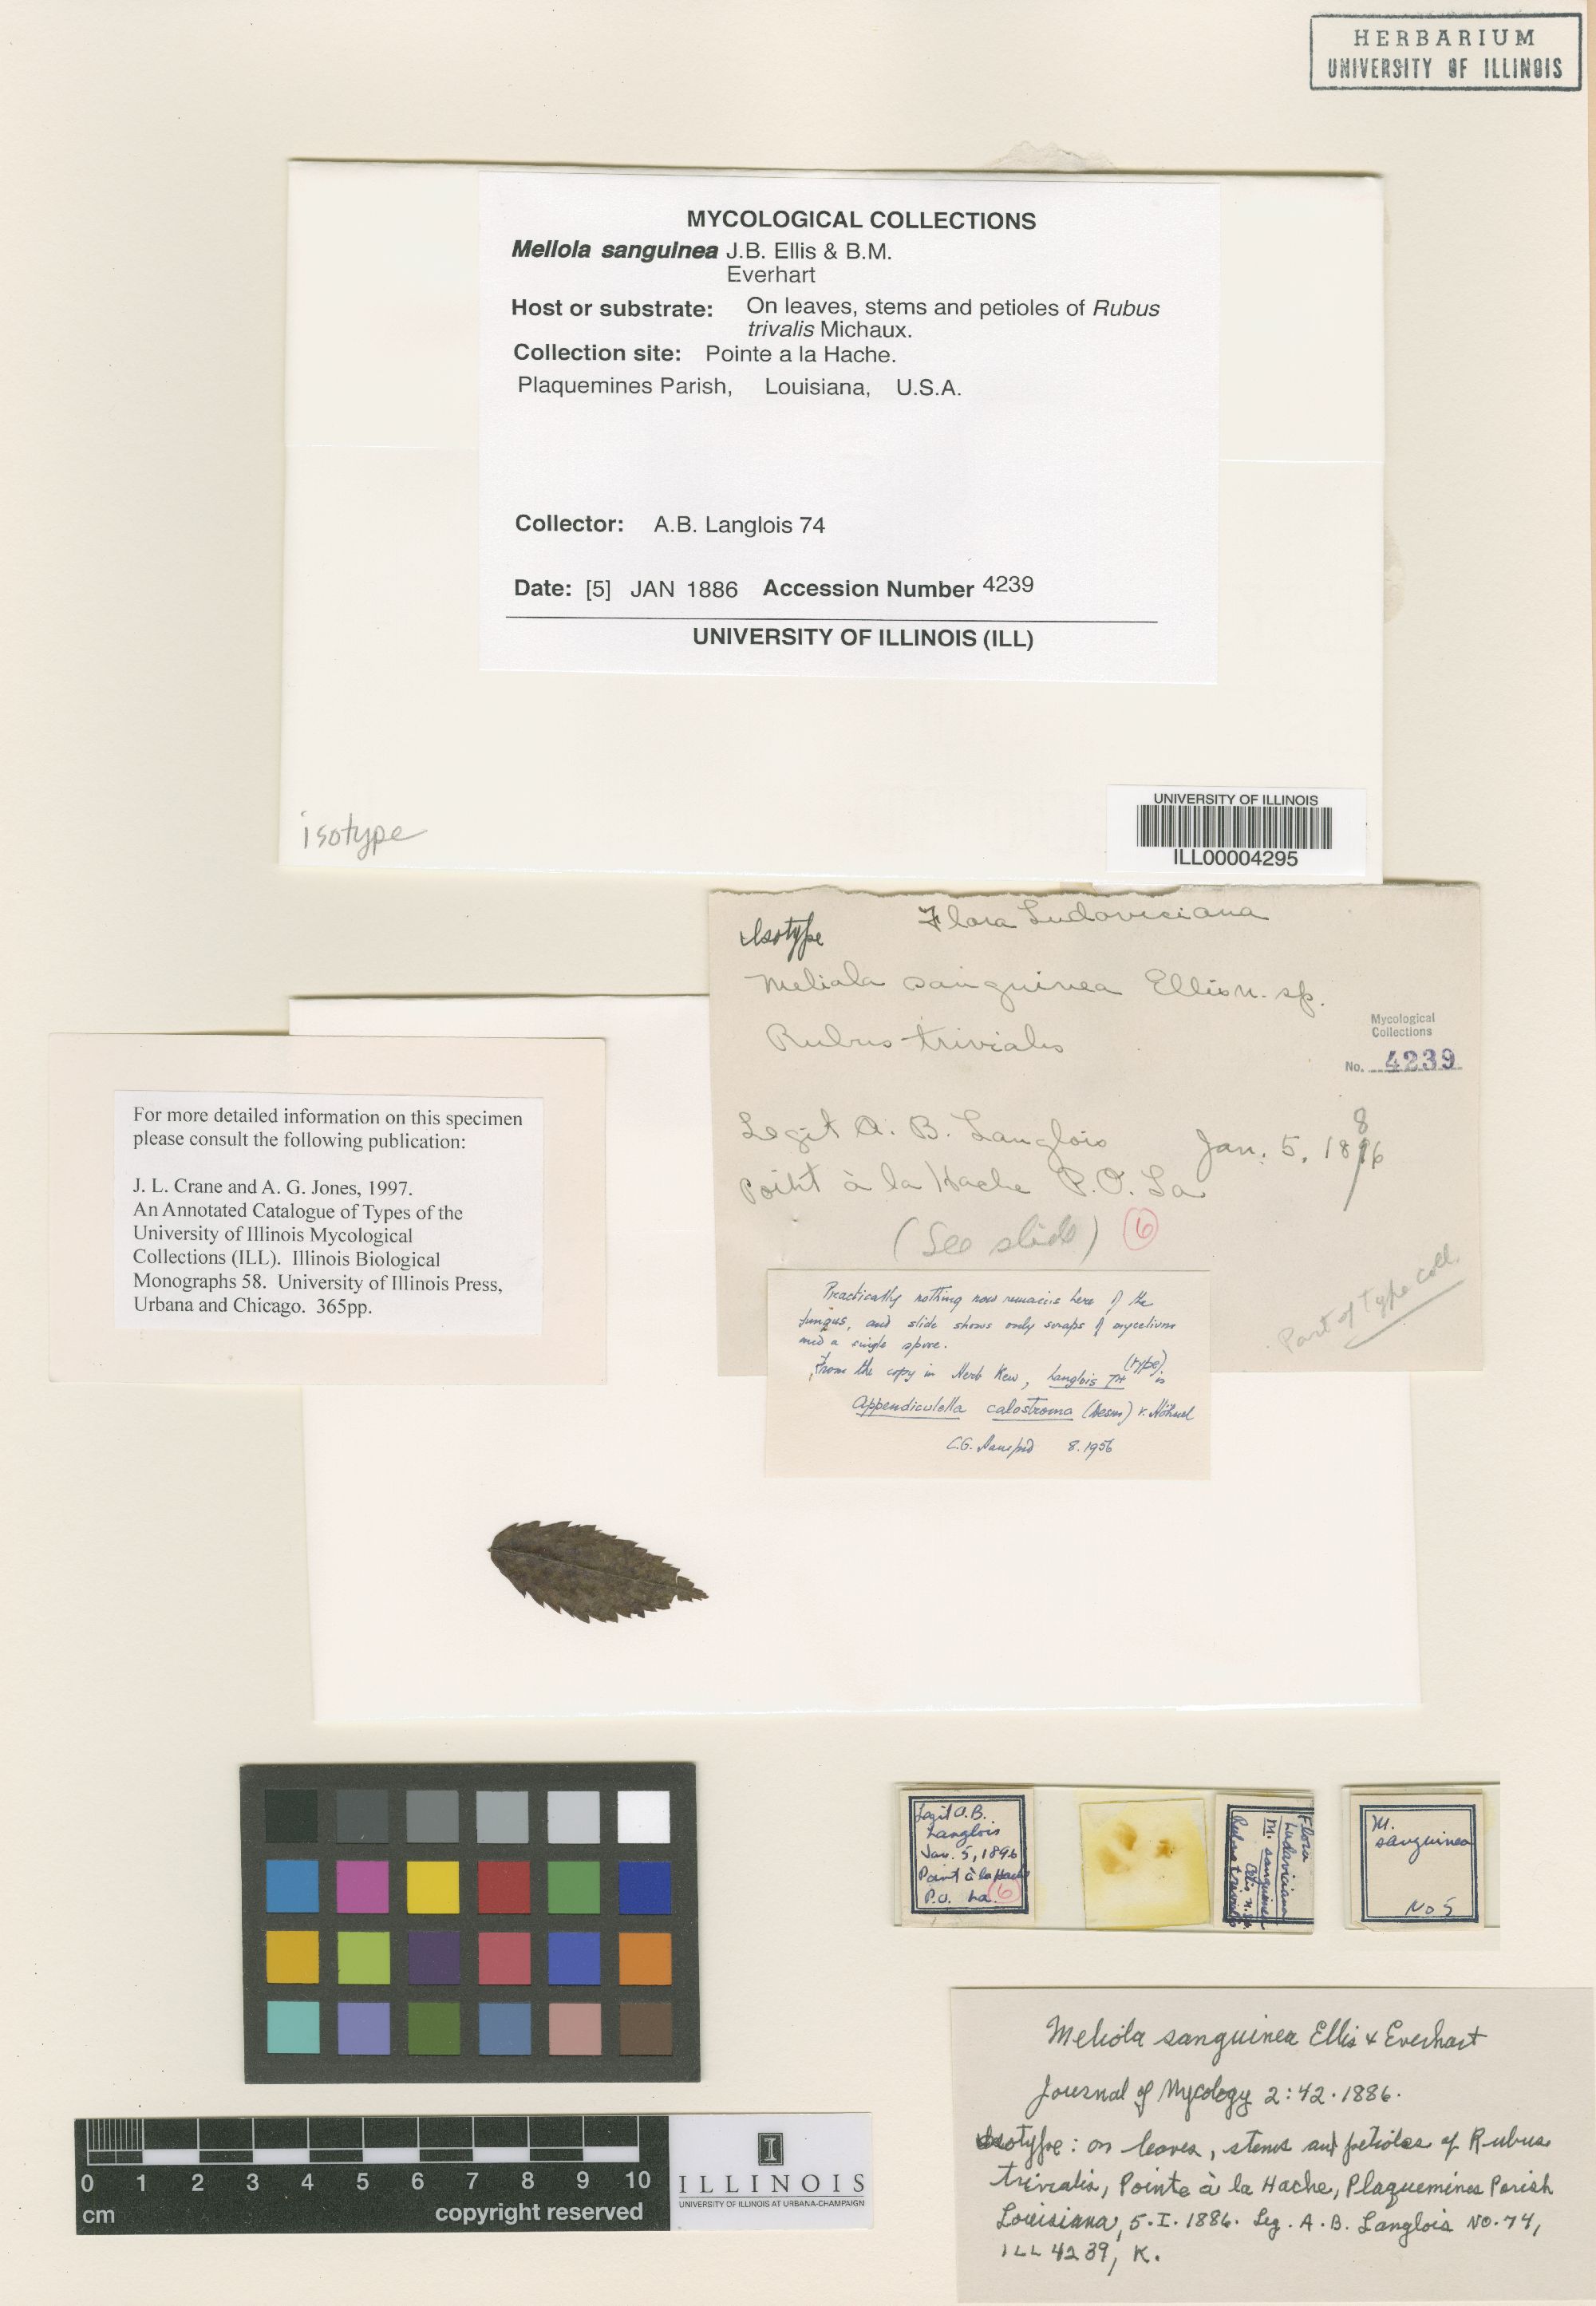 HERBARIUM
UNIVERSITY OF ILLINOIS
MYCOLOGICAL COLLECTIONS
Meliola sanguinea J.B. Ellis & B.M.
Everhart
Host or substrate: On leaves, stems and petioles of Rubus
trivalis Michaux.
Collection site: Pointe a la Hache.
Plaquemines Parish, Louisiana, U.S.A.
Collector: A.B. Langlois 74
Date: [5] JAN 1886 Accession Number 4239
UNIVERSITY OF ILLINOIS (ILL)
isotype
UNIVERSITY OF ILLINOIS
ILL00004295
Isotype
Flora Ludoviciana
Meliola sanguinea Ellis n. sp.
Rubus trivialis
Mycological
Collections
No. 4239
Legit A. B. Langlois Jan. 5, 1896
8
Point à la Hache P.O. La
(See slide) 6
Part of Type Coll.
For more detailed information on this specimen
please consult the following publication:
J. L. Crane and A. G. Jones, 1997.
An Annotated Catalogue of Types of the
University of Illinois Mycological
Collections (ILL). Illinois Biological
Monographs 58. University of Illinois Press,
Urbana and Chicago. 365pp.
Practically nothing now remains here of the
fungus, and slide shows only scraps of mycelium
and a single spore.
From the copy in Herb Kew, Langlois 74 (type) is
Appendiculella calostroma (Desm) v. Höhnel
C.G. Hansford 8.1956
Legit A.B.
Langlois
Jan. 5, 1896
Point à la Hache
P.O. La. 6
Flora
Ludoviciana
M. sanguinea
n. sp.
Rubus trivialis
M.
sanguinea
No 5
Meliola sanguinea Ellis & Everhart
Journal of Mycology 2:42. 1886.
Isotype: on leaves, stems and petioles of Rubus
trivialis, Pointe à la Hache, Plaquemines Parish
Louisiana, 5.I.1886. Leg. A.B. Langlois No. 74,
ILL 4239, K.
0 1 2 3 4 5 6 7 8 9 10
cm copyright reserved
I
ILLINOIS
UNIVERSITY OF ILLINOIS AT URBANA-CHAMPAIGN